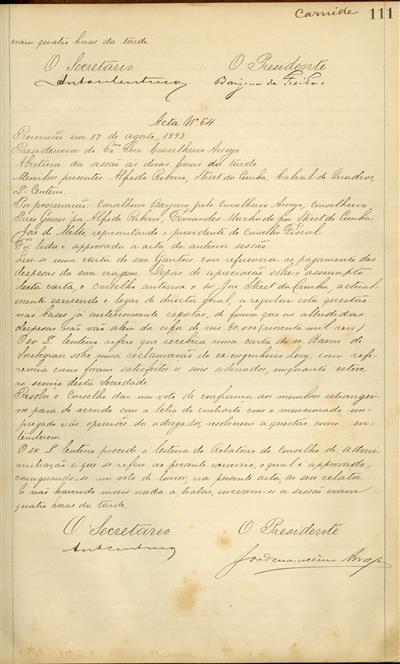 Carnide 111
eram quatro horas da tarde.
O Secretario O Presidente
Acta Nº 64
Reunião em 17 de agosto, 1893
Presidencia do Exmo Snr Conselheiro Arroyo
Abertura da sessão ás duas horas da tarde
Membros presentes Alfredo Ribeiro, Street da Cunha, Cabral de Quadros,
L. Centeno.
Por procuração: Conselheiro Bargana pelo Conselheiro Arroyo, conselheiro
Pires Gomes por Alfredo Ribeiro, Fernandes Machado por Street da Cunha
José de Mello, representando o presidente do Conselho Fiscal
Foi lida e approvada a acta da anterior sessão
Leu-se uma carta do snr Santos com referencia ao pagamento das
despezas da sua viagem. Depois de apreciação sobre o assumpto
desta carta, o conselho autorisa o sr José Street da Cunha, actual-
mente exercendo o logar de director geral, a regular esta questão
nas bases já anteriormente expostas, de forma que as alludidas
despezas não vão alem da cifra de reis
O sr L. Centeno refere que recebera uma carta do sr Barão de
sobre uma reclamação do ex-engenheiro Levy, com refe-
rencia como foram satisfeitos os seus ordenados, emquanto esteve
ao serviço desta Sociedade
Resolve o Conselho dar um voto de confiança aos membros estrangei-
ros para de accordo com a letra do contracto com o mencionado em-
pregado e as opiniões do advogado, resolverem a questão como en-
tenderem.
O sr L. Centeno procede á leitura do Relatorio do Conselho de admi-
nistração e que se refere ao presente exercicio, o qual é approvado,
consignando-se um voto de louvor, na presente acta, ao seu relator.
E não havendo mais nada a tratar, encerrou-se a sessão eram
quatro horas da tarde.
O Secretario O Presidente